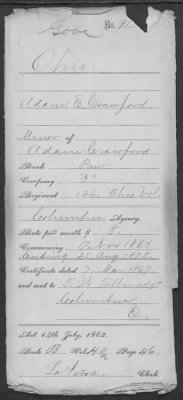 Gove
No.
Ohio.
Adam E. Crawford,
Minor of
Adam Crawford
Rank Priv
Company "F"
Regiment 126 Ohio Vol.
Columbus Agency.
Rate per month $ 8.
Commencing 7 Nov 1865
Ending 25 Aug 1878.
Certificate dated 7 Mar 1867
and sent to
Columbus,
O.
Act 14th July, 1862.
Book B Vol. Page 46
Clerk